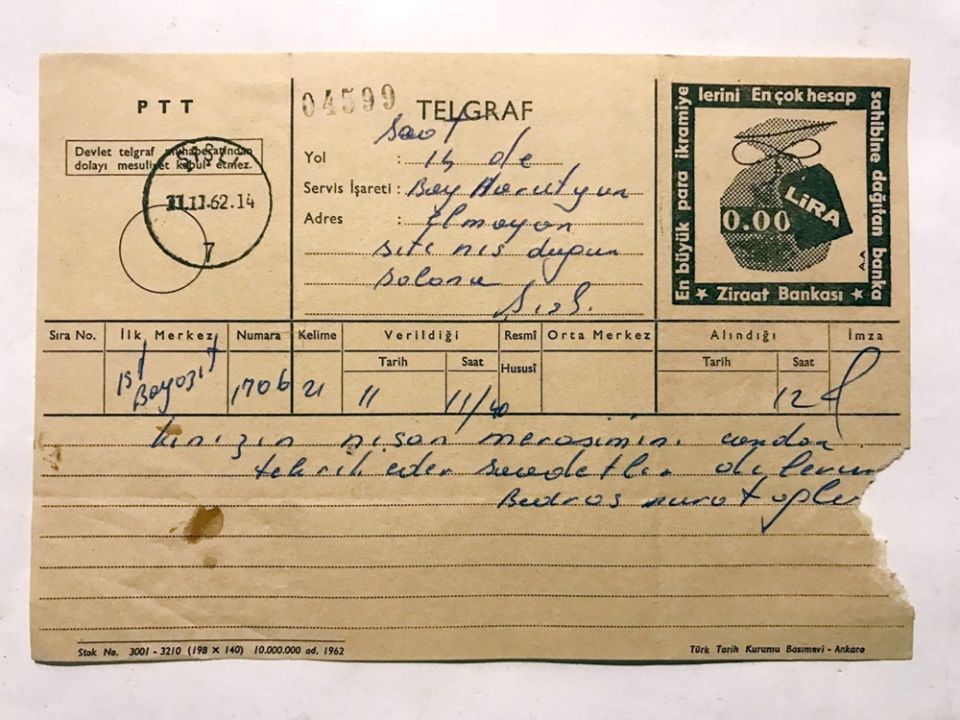 PTT
Devlet telgraf muhaberatından
dolayı mesuliyet kabul etmez.
ŞİŞLİ
11.11.62.14
7
04599
TELGRAF
Saat
Yol : 14 de
Servis İşareti : Bay Harutyun
Adres : Elmayan
site nis dugun
salonu
Şişli
En büyük para ikramiye
lerini En çok hesap
sahibine dağıtan banka
0.00
LiRA
A.A
★ Ziraat Bankası ★
Sıra No. İlk Merkez Numara Kelime Verildiği Resmî Orta Merkez Alındığı İmza
Tarih Saat Hususî Tarih Saat
ist
Beyazıt 1706 21 11 11/40 12
kınızın nişan merasimini candan
tebrik eder saadetler dilerim
Bedros
Stok No. 3001 - 3210 (198 X 140) 10.000.000 ad. 1962
Türk Tarih Kurumu Basımevi - Ankara